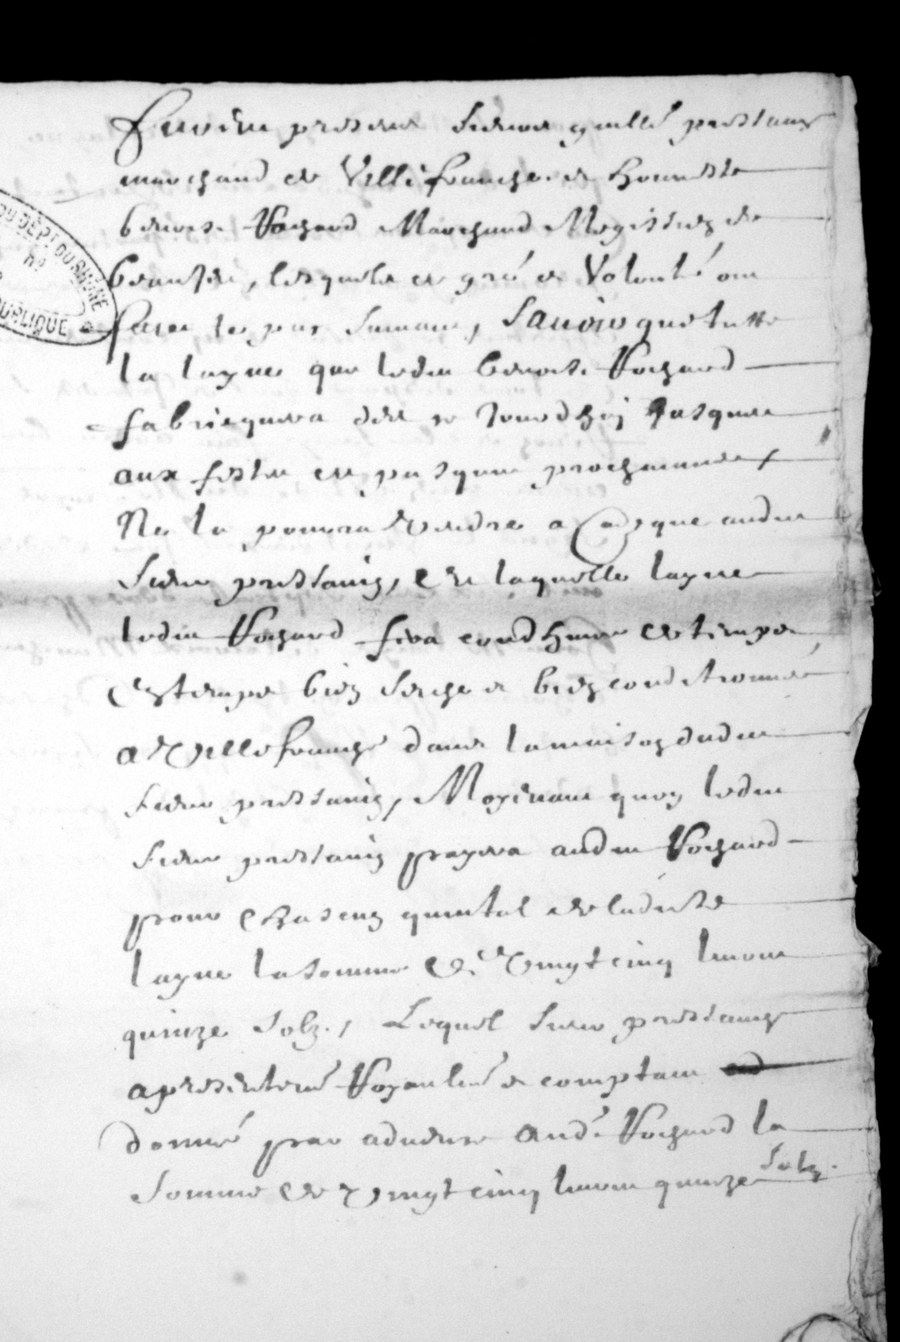 Furent present sieur guille prestanis
marchand de Villefranche et honneste
benoist Vochard Marchand Megissier de
beaujeu, lesquels de gré et Volonté ont
faict le pac suivant, Scauoir que toutte
la layne que ledit benoist Vochard
fabriquera dès ce jourdhuy jusques
aux festes de pasques prochaines
Ne la pourra Vendre a quaudit
sieur prestanis, de laquelle layne
ledit Vochard fera conduire de temps
En temps bien seiche et bien conditionnée
a Villefranche dans la maison dudit
sieur prestanis, Moyenant quoy ledit
sieur prestanis payera audit Vochard
pour Chascun quintal de ladicte
layne la somme de Vingt cinq liures
quinze solz, Lequel sieur prestanis
a presentement et comptant
donné par aduence audit Vochard la
somme de Vingt cinq liures quinze solz
DU DÉPT DU RHÔNE